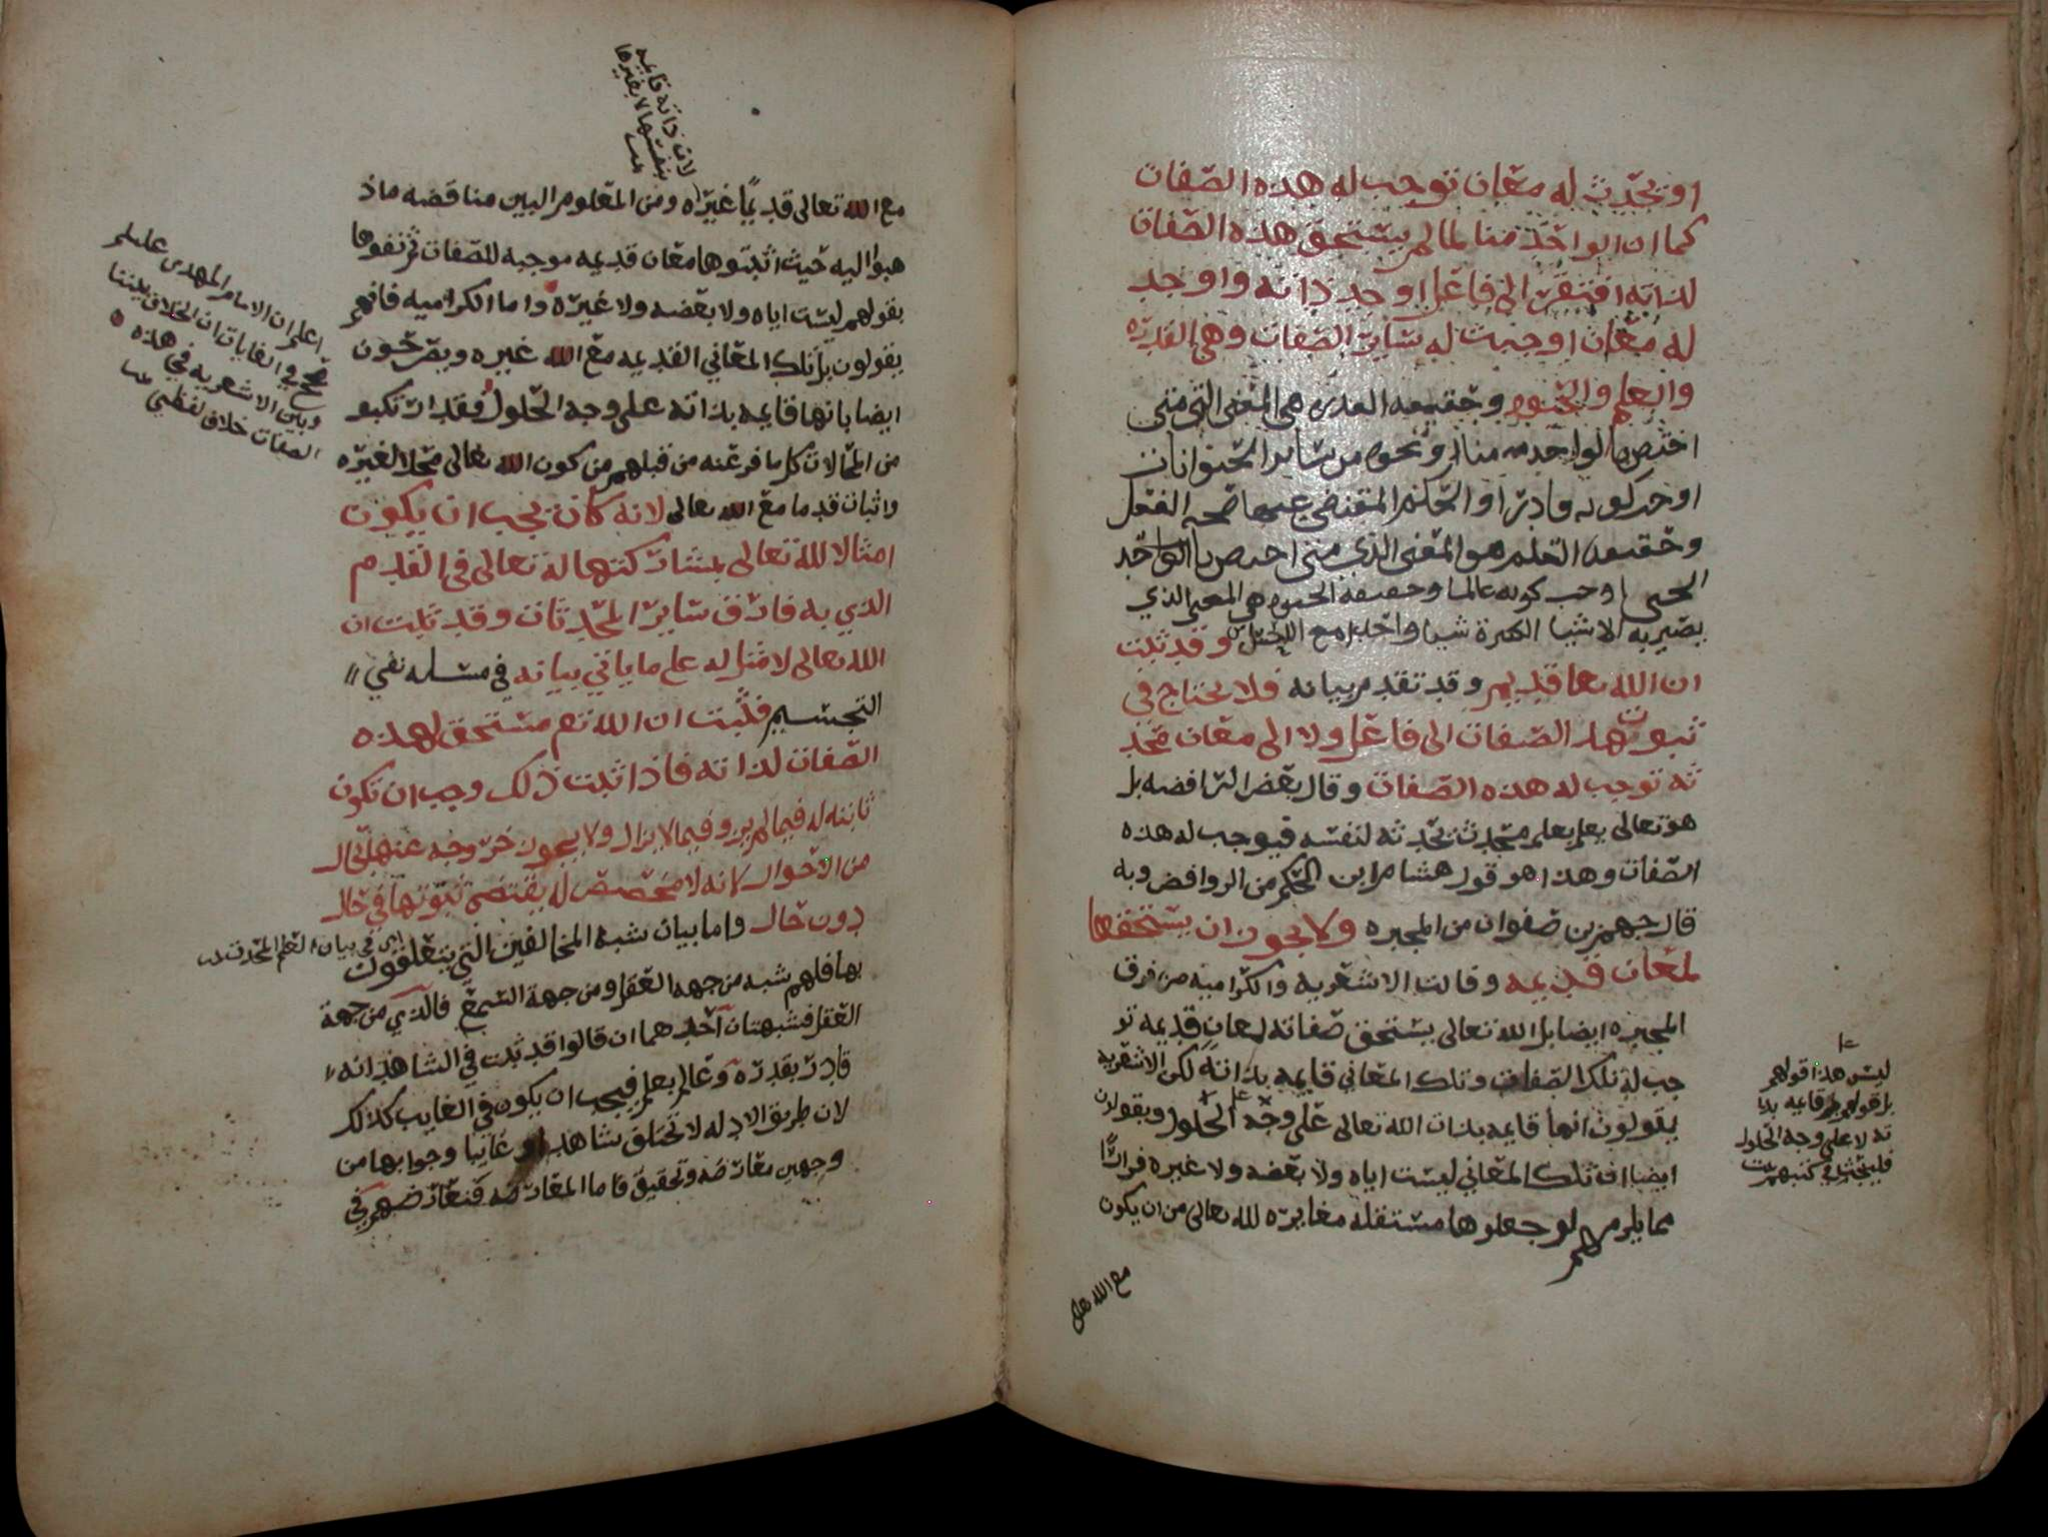 او تحدث له معان توجب له هذه الصفات
كما ان الواحد منا لما لم يستحق هذه الصفات
لذاته افتقر الى فاعل اوجد ذاته واوجد
له معان اوجبت له سائر الصفات وهي القدره
والعلم والحيوه وحقيقه القدره هي المعنى التي متى
اختص بها الواحد منا او نحوه من سائر الحيوانات
اوجب كونه قادرا او الحكم المقتضي عنها صحه الفعل
وحقيقه العلم هو المعنى الذي متى اختص بالواحد
الحي اوجب كونه عالما وحقيقه الحيوه هي المعنى الذي
يصير به الاشيا الكثيرة شيا واحدا مع وقد ثبت
ان الله تعا قديم وقد تقدم بيانه فلا يحتاج في
ثبوت هذه الصفات الى فاعل ولا الى معان محد
ثه توجب له هذه الصفات وقال بعض الرافضه بل
هو تعالى يعلم بعلم محدث تحدثه لنفسه فيوجب له هذه
الصفات وهذا هو قول هشام ابن الحكم من الروافض وبه
قال جهم بن صفوان من المجبره ولا يجوز ان يستحقها
لمعان قديمه وقالت الاشعريه والكراميه من فرق
المجبره ايضا بل الله تعالى يستحق صفاته لمعان قديمه تو
جب له تلك الصفات وتلك المعاني قايمه بذاته لكن الاشعريه
يقولون انها قايمه بذات الله تعالى على وجه الحلول ويقولون
ايضا ان تلك المعاني ليست اياه ولا بعضه ولا غيره فرارا
مما يلزمهم لو جعلوها مستقله مغايره لله تعالى من ان يكون
مع الله
ليس هذا قولهم
بل قولهم قايمه بذا
ته لا على وجه الحلول
فليبحث في كتبهم
مع الله تعالى قديما غيره ومن المعلوم البين مناقضه ماذ
هبوا اليه حيث اثبتوها معان قديمه موجبه للصفات ثم نفوها
بقولهم ليست اياه ولا بعضه ولا غيره واما الكراميه فانهم
يقولون بل تلك المعاني القديمه مع الله غيره ويصرحون
ايضا بانها قايمه بذاته على وجه الحلول فقد ارتكبو
من المحالات كل ما فر عنه من قبلهم من كون الله تعالى محلا لغيره
واثبات قدما مع الله تعالى لانه كان يجب ان يكون
امثالا لله تعالى بمشاركتها له تعالى في القدم
الذي به فارق سائر المحدثات وقد ثبت ان
الله تعالى لا مثل له على ما ياتي بيانه في مسله نفي
التجسيم فثبت ان الله تعم مستحق لهذه
الصفات لذاته فاذا ثبت ذلك وجب ان تكون
ثابته له فيما لم يزل وفيما لا يزال ولا يجوز خروجه عنها بحال
من الاحوال لانه لا مخصص له يقتضي ثبوتها في حال
دون حال واما بيان شبه المخالفين التي يتعلقون
بها فلهم شبه من جهه العقل ومن جهة السمع فالذي من جهة
العقل فشبهتان احدهما ان قالوا قد ثبت في الشاهد انه
قادر بقدره وعالم بعلم فيجب ان يكون في الغايب كذلك
لان طريق الادله لا تختلف شاهدا او غايبا وجوابها من
وجهين معارضه وتحقيق فاما المعارضه فنعارضهم في
لان ذاته قايمه
بنفسها لا بغيرها
اعلم ان الامام المهدي عليلم
صحح في الغايات ان الخلاف بيننا
وبين الاشعريه في هذه
الصفات خلاف لفظي
اي في بيان العلم المحدث